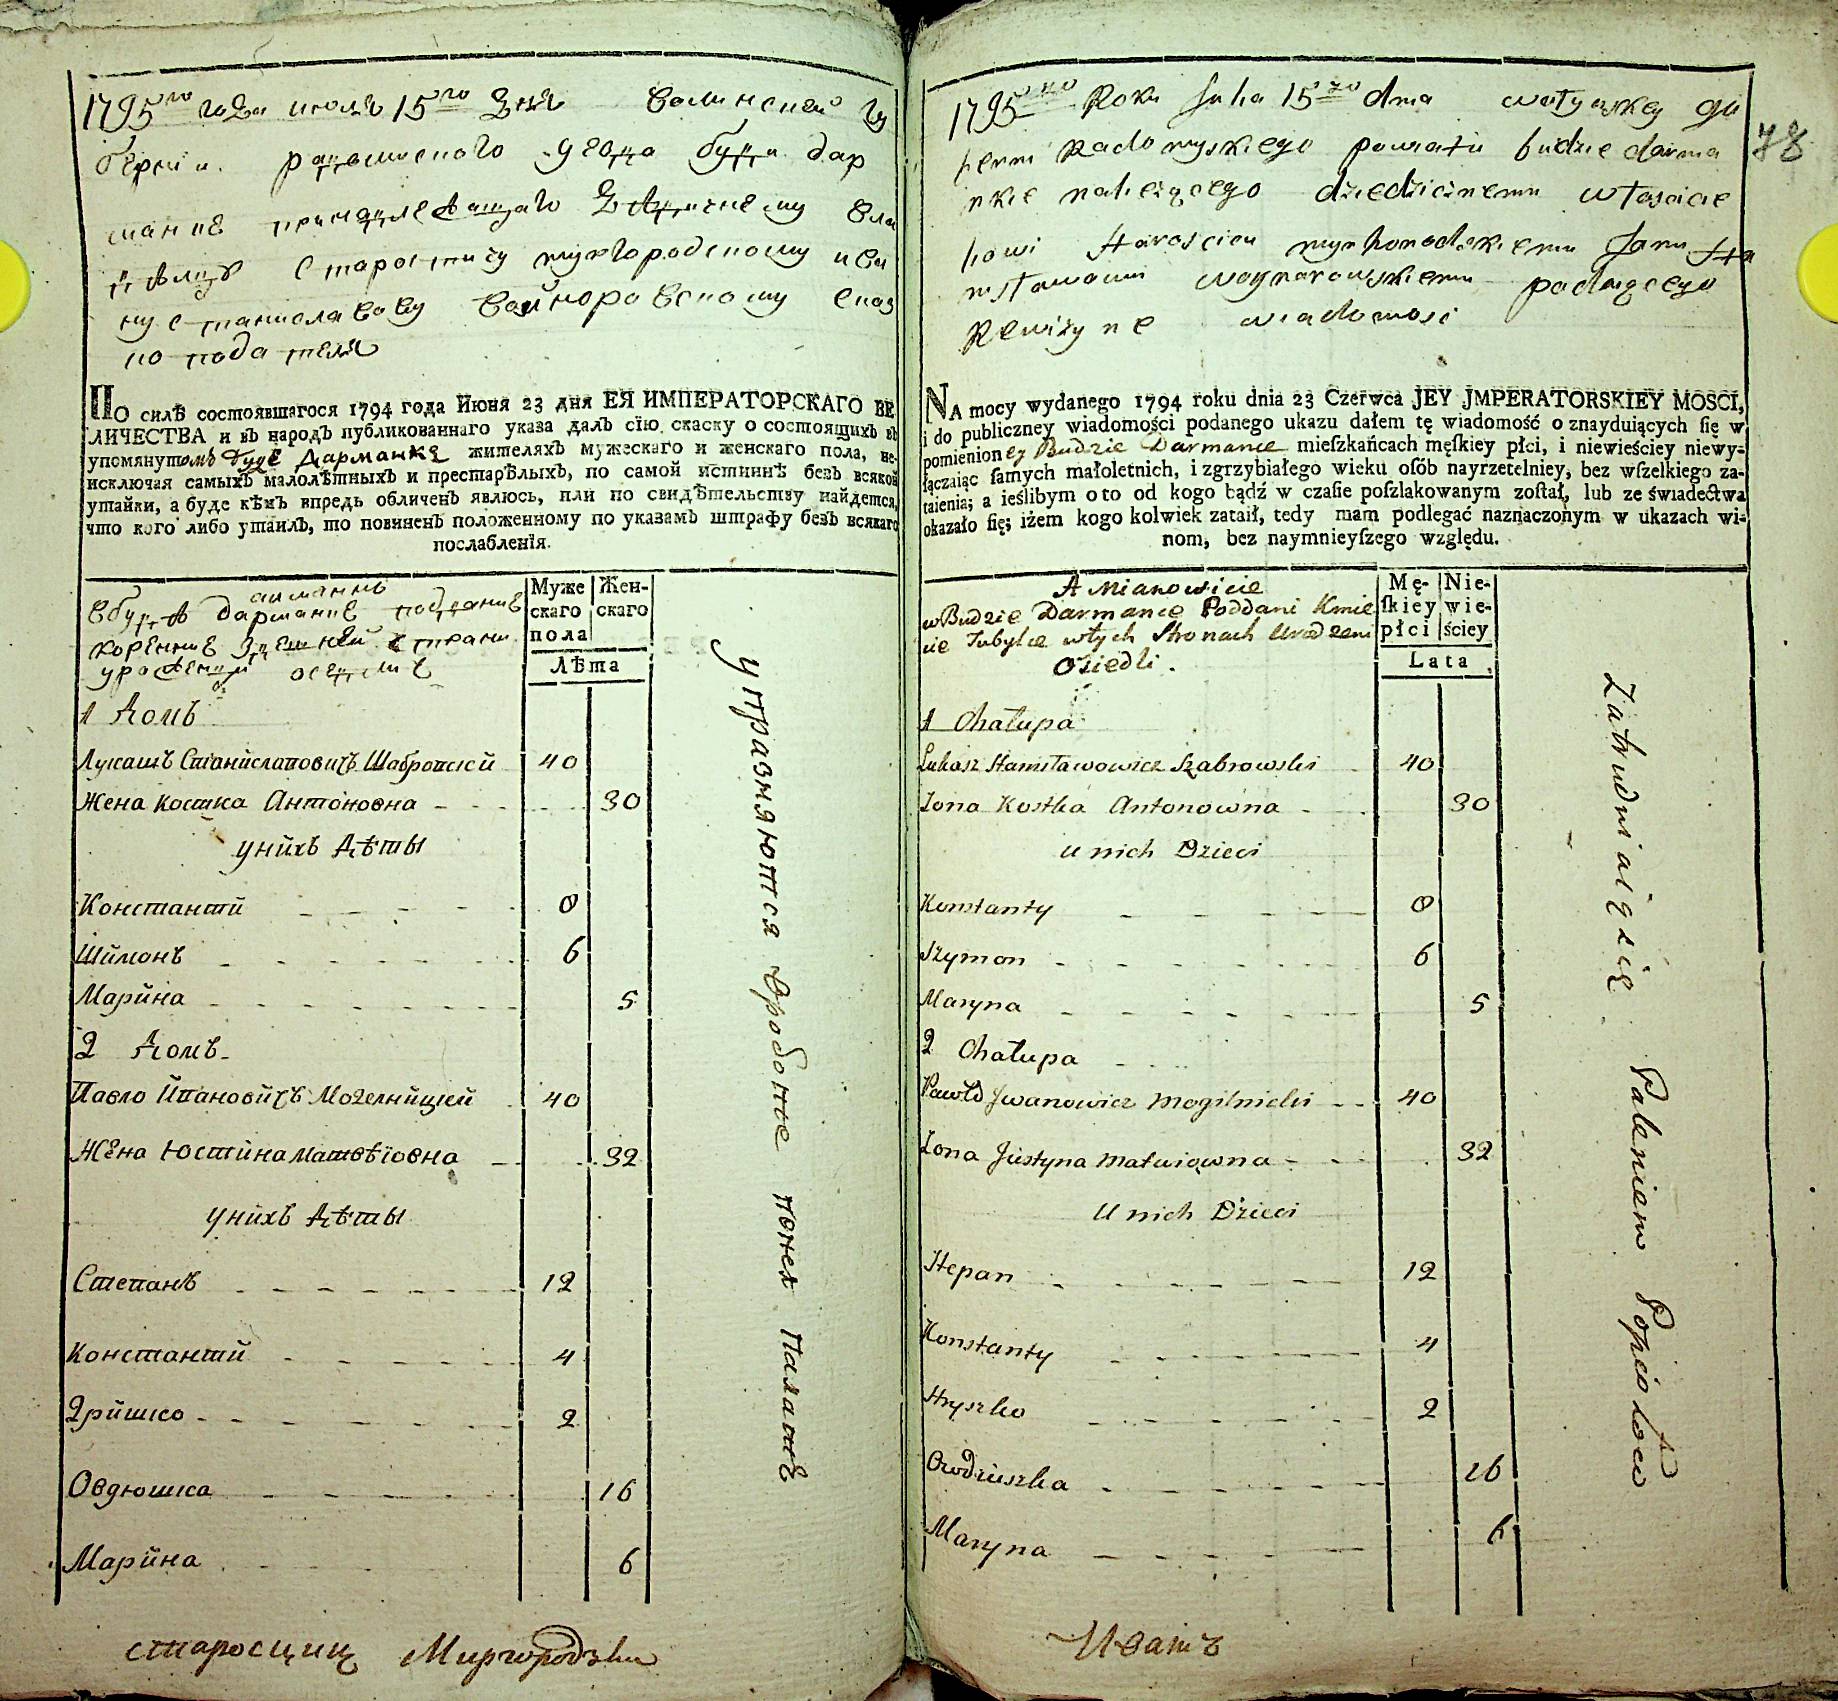 1795го года июля 15го дня волинской гу
берніи радомиского уезда буди дар
манке принадлежащаго
Старостичу миргородскому ива
ну станиславову войнаровскому
по подателя
ПО силѣ состоявшагося 1794 года Июня 23 дня ЕЯ ИМПЕРАТОРСКАГО ВЕ
ЛИЧЕСТВА и въ народъ публикованнаго указа далъ сїю скаску о состоящихъ въ
упомянутомъ буде Дарманке жителяхъ мужескаго и женскаго пола, не
исключая самыхъ малолѣтныхъ и престарѣлыхъ, по самой истиннѣ безъ всякой
утайки, а буде кѣмъ впредь обличенъ явлюсь, или по свидѣтельству найдется,
что кого либо утаилъ, то повиненъ положенному по указамъ штрафу безъ всякаго
послабленїя.
аиманнъ
вбудѣ дарманке поддание
коренние здешней страни
урожении оседлие
Муже Жен-
скаго скаго
пола
Лѣта
1 Домъ
Лукашъ Станиславовичъ Шабровскей 40
Жена Костка Антоновна 30
унихъ Дѣты
Константй 8
Шимонъ 6
Марина 5
2 Домъ
Павло Ивановичъ Могелницкей 40
Жена Юстина Матвѣювна 32
унихъ Дѣты
Степанъ 12
Константй 4
Гришко 2
Овдюшка 16
Марина 6
упразняются
старосциц Миргородзки
1795 Roku Julia 15 dnia wołynskey gu
berni Radomyskiego powiatu budzie darma
nkie należącego dziedzicznemu własciciè
lowi Staroscicu myrhorodskiemu Janu Sta
nisławowi woynarowskiemu podaiącego
Rewizyne wiadomosci
78
NA mocy wydanego 1794 roku dnia 23 Czerwca JEY JMPERATORSKIEY MOSCI,
i do publiczney wiadomości podanego ukazu dałem tę wiadomość o znayduiących ſię w
pomienioney Budzie Darmanie mieſzkańcach męſkiey płci, i niewieściey niewy-
łączaiąc ſamych małoletnich, i zgrzybiałego wieku oſób nayrzetelniey, bez wſzelkiego za-
taienia; a ieślibym oto od kogo bądź w czaſie poſzlakowanym zoſtał, lub ze świadectwa
okazało ſię; iżem kogo kolwiek zataił, tedy mam podlegać naznaczonym w ukazach wi-
nom, bez naymnieyſzego względu.
A Mianowicie
w Budzie Darmance Poddani Kmie
cie Tubylce wtych Stronach Urodzeni
Osiedli.
Mę- Nie-
ſkiey wie-
płci ściey
Lata
1 Chałupa
Łukasz Stanisławowicz Szabrowski 40
Żona Kostka Antonowna 30
u nich Dzieci
Konstanty 8
Szymon 6
Maryna 5
2 Chałupa
Pawło Jwanowicz Mogilnicki 40
Żona Justyna Matwiowna 32
U nich Dzieci
Stepan 12
Konstanty 4
Hryszko 2
Owdziuszka 16
Maryna 6
Zatrudniaią się Paleniem Popiołów
Иванъ